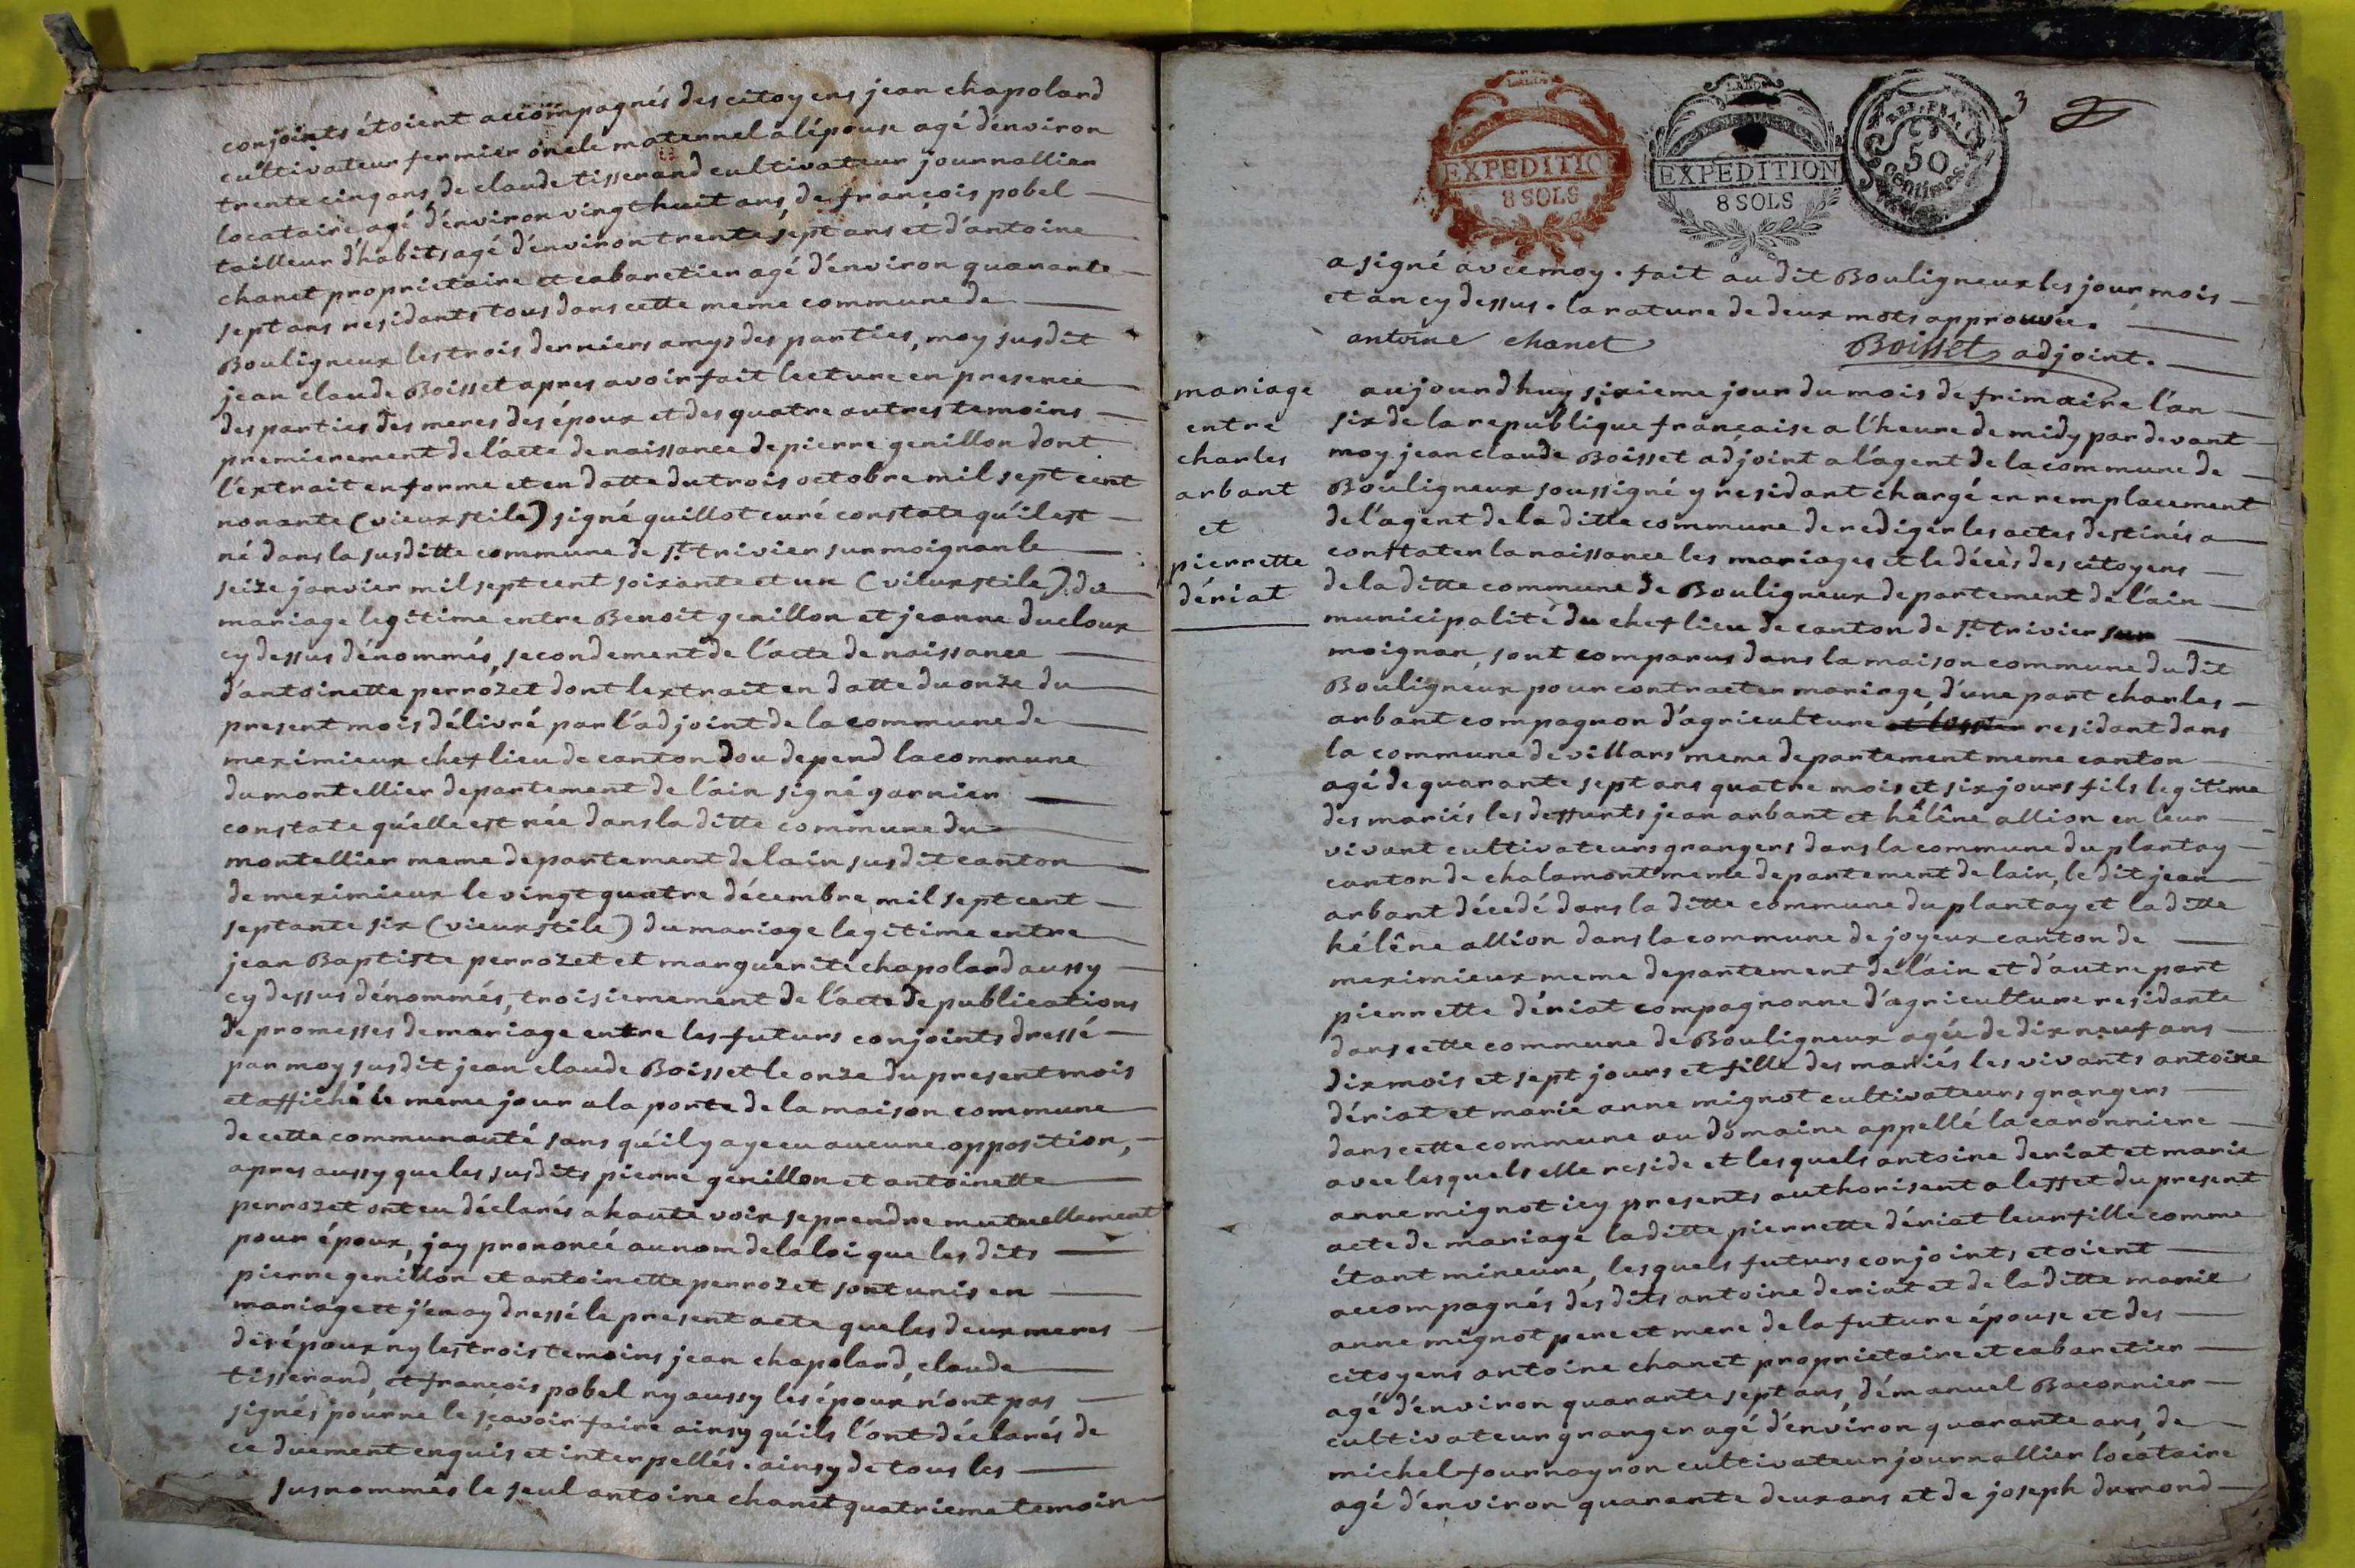 conjoints étoient accompagnés des citoyens jean chapolard
cultivateur fermier oncle maternel a lépouse agé dénviron
trente cinq ans, de claude tisserand cultivateur journallier
locataire agé dénviron vingt huit ans, de françois pobel
tailleur d'habits agé dénviron trente sept ans et d'antoine
chanet proprietaire et cabaretier agé dénviron quarante
sept ans residants tous dans cette meme commune de
Bouligneux les trois derniers amys des parties, moy susdit
jean claude Boisset apres avoir fait lecture en presence
des parties des meres des époux et des quatre autres temoins
premierement de l'acte de naissance de pierre genillon dont
l'extrait en forme et en datte du trois octobre mil sept cent
nonante (vieux stile) signé guillot curé constate qu'il est
né dans la susditte commune de st trivier sur moignan le
seize janvier mil sept cent soixante et un (vieux stile) du
mariage legitime entre Benoit genillon et jeanne ducloux
cy dessus dénommés, secondement de l'acte de naissance
d'antoinette perrozet dont lextrait en datte du onze du
present mois délivré par l'adjoint de la commune de
meximieux chef lieu de canton dou depend la commune
du montellier departement de l'ain signé garnier
constate quélle est née dans la ditte commune du
montellier meme departement de lain susdit canton
de meximieux le vingt quatre décembre mil sept cent
septante six (vieux stile) du mariage legitime entre
jean Baptiste perrozet et marguerite chapolard aussy
cy dessus dénommés, troisiemement de l'acte de publications
de promesses de mariage entre les futurs conjoints dressé
par moy susdit jean claude Boisset le onze du present mois
et affiché le meme jour a la porte de la maison commune
de cette communauté sans qu'il y aye eu aucune opposition,
apres aussy que les susdits pierre genillon et antoinette
perrozet ont eu déclarés a haute voix se prendre mutuellement
pour époux, jay prononcé au nom de la loi que les dits
pierre genillon et antoinette perrozet sont unis en
mariage et j'en ay dressé le present acte que les deux meres
des époux ny les trois temoins jean chapolard, claude
tisserand, et françois pobel ny aussy les époux n'ont pas
signés pour ne le sçavoir faire ainsy qu'ils l'ont déclarés de
ce duement enquis et interpellés. ainsy de tous les
susnommés le seul antoine chanet quatrieme temoin
LALOI
EXPEDITION
8 SOLS
LALOI
EXPEDITION
8 SOLS
REP. FRA.
50
centimes
3
a signé avec moy. fait au dit Bouligneux les jour, mois
et an cy dessus. la rature de deux mots approuvée.
antoine chanet Boisset adjoint.
mariage
entre
charles
arbant
et
pierrette
dériat
aujourdhuy sixieme jour du mois de frimaire l'an
six de la republique française a l'heure de midy par devant
moy jean claude Boisset adjoint a l'agent de la commune de
Bouligneux soussigné y residant chargé en remplacement
de l'agent de la ditte commune de rediger les actes destinés a
constater la naissance les mariages et le décès des citoyens
de la ditte commune de Bouligneux departement de l'ain
municipalité du chef lieu de canton de st trivier sur
moignan, sont comparus dans la maison commune du dit
Bouligneux pour contracter mariage, d'une part charles
arbant compagnon d'agriculture residant dans
la commune de villars meme departement meme canton
agé de quarante sept ans quatre mois et six jours fils legitime
des mariés les deffunts jean arbant et hélêne allion en leur
vivant cultivateurs grangers dans la commune du plantay
canton de chalamont meme departement de lain, le dit jean
arbant décedé dans la ditte commune du plantay et la ditte
hélêne allion dans la commune de joyeux canton de
meximieux meme departement de l'ain et d'autre part
pierrette dériat compagnonne d'agriculture residante
dans cette commune de Bouligneux agée de dix neuf ans
dix mois et sept jours et fille des mariés les vivants antoine
dériat et marie anne mignot cultivateurs grangers
dans cette commune au domaine appellé la caronniere
avec lesquels elle reside et lesquels antoine deriat et marie
anne mignot icy presents authorisent a leffet du present
acte de mariage la ditte pierrette dériat leur fille comme
étant mineure, lesquels futurs conjoints etoient
accompagnés des dits antoine deriat et de la ditte marie
anne mignot pere et mere de la future épouse et des
citoyens antoine chanet proprietaire et cabaretier
agé dénviron quarante sept ans, démanuel Baconnier
cultivateur granger agé dénviron quarante ans, de
michel fournayron cultivateur journallier locataire
agé dénviron quarante deux ans et de joseph dumond